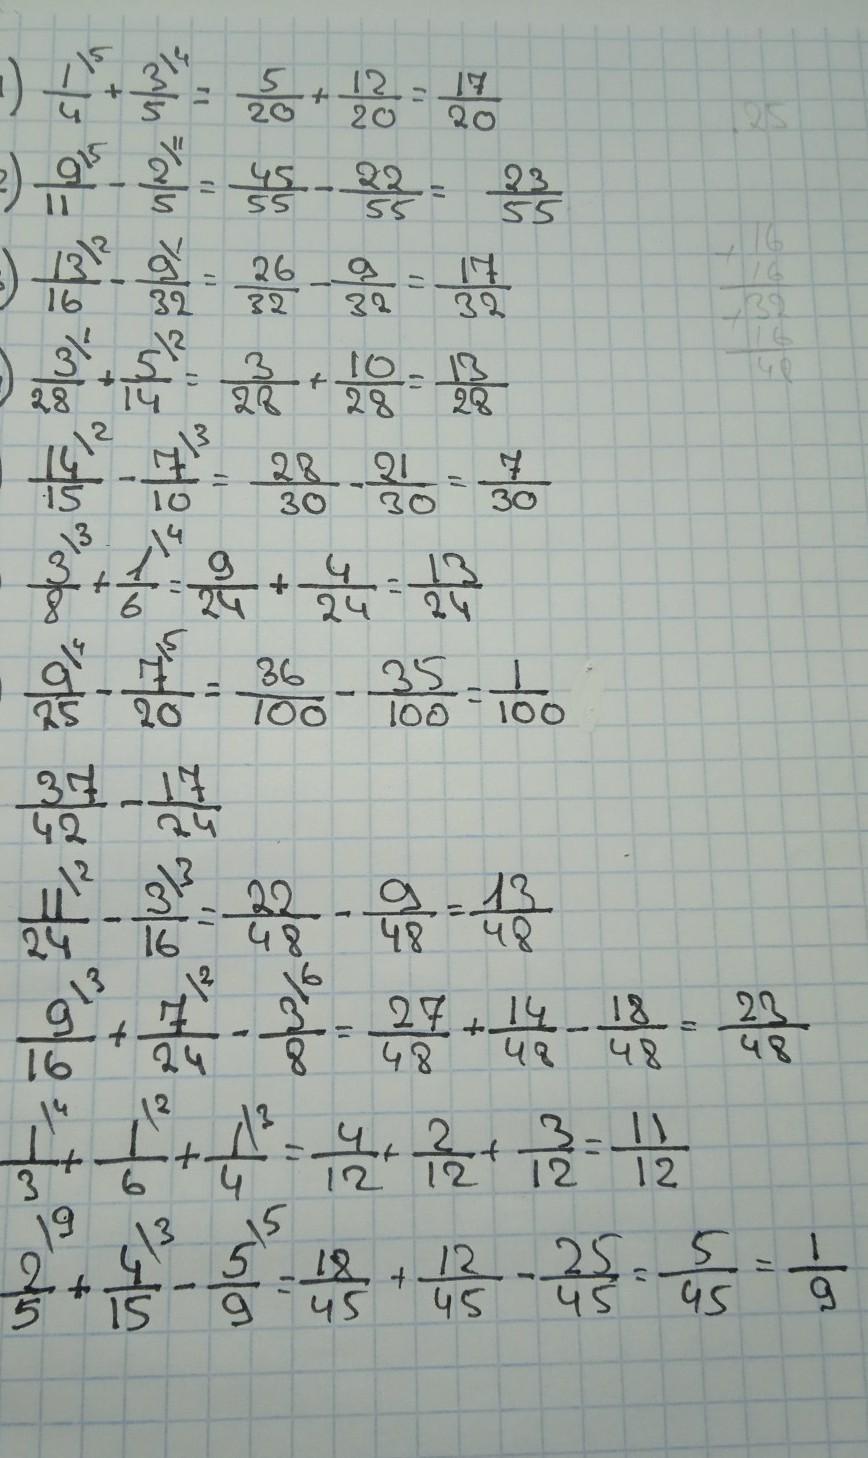 1) 1/4\5 + 3/5\4 = 5/20 + 12/20 = 17/20
2) 9/11\5 - 2/5\11 = 45/55 - 22/55 = 23/55
) 13/16\2 - 9/32\1 = 26/32 - 9/32 = 17/32
) 3/28\1 + 5/14\2 = 3/28 + 10/28 = 13/28
14/15\2 - 7/10\3 = 28/30 - 21/30 = 7/30
3/8\3 + 1/6\4 = 9/24 + 4/24 = 13/24
9/25\4 - 7/20\5 = 36/100 - 35/100 = 1/100
37/42 - 17/24
11/24\2 - 3/16\3 = 22/48 - 9/48 = 13/48
9/16\3 + 7/24\2 - 3/8\6 = 27/48 + 14/48 - 18/48 = 23/48
1/3\4 + 1/6\2 + 1/4\3 = 4/12 + 2/12 + 3/12 = 11/12
2/5\9 + 4/15\3 - 5/9\5 = 18/45 + 12/45 - 25/45 = 5/45 = 1/9